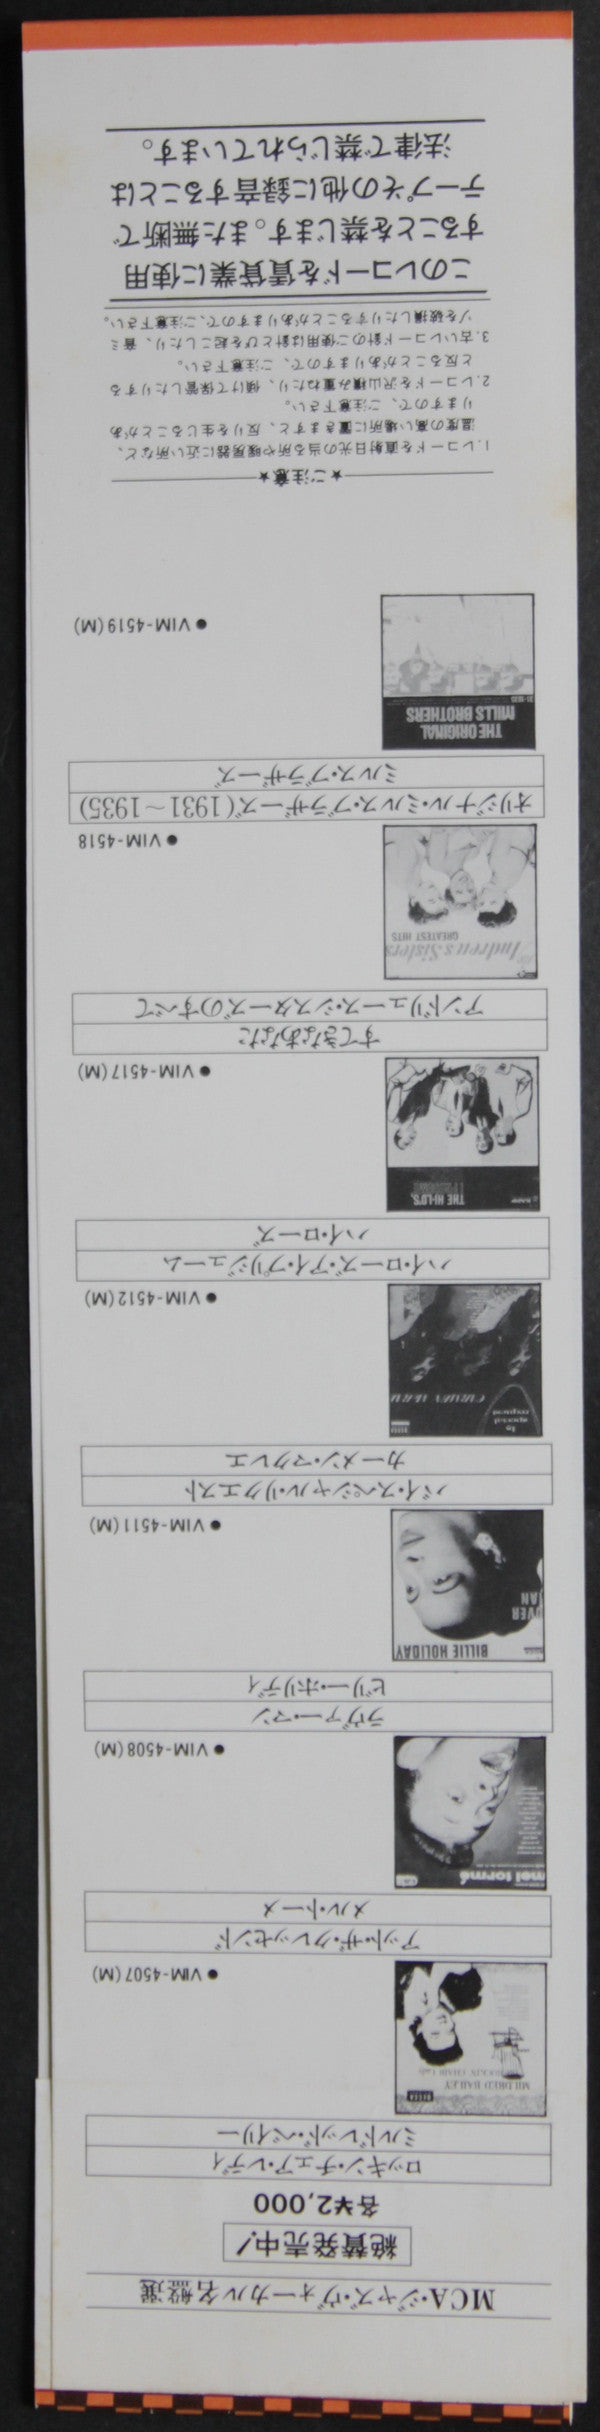 MCA・ジャズ・ヴォーカル名盤選
絶賛発売中!
各¥2,000
ロッキン・チェア・レディ
ミルドレッド・ベイリー
MILDRED BAILEY
DECCA
● VIM-4507(M)
アット・ザ・クレッセンド
メル・トーメ
mel tormé
● VIM-4508(M)
ラヴァー・マン
ビリー・ホリディ
BILLIE HOLIDAY
● VIM-4511(M)
バイ・スペシャル・リクエスト
カーメン・マクレエ
by
special
request
● VIM-4512(M)
ハイ・ローズ・アイ・プリジューム
ハイ・ローズ
THE HI-LO'S,
I PRESUME
● VIM-4517(M)
すてきなあなた
アンドリュース・シスターズのすべて
Andrews Sisters
GREATEST HITS
● VIM-4518
オリジナル・ミルス・ブラザーズ(1931~1935)
ミルス・ブラザーズ
THE ORIGINAL
MILLS BROTHERS
● VIM-4519(M)
★ご注意★
1.レコードを直射日光の当る所や暖房器に近い所など、
温度の高い場所に置きますと、反りを生じることがあ
りますので、ご注意下さい。
2.レコードを沢山積み重ねたり、傾けて保管したりする
と反ることがありますので、ご注意下さい。
3.古いレコード針のご使用は針とびを起こしたり、音ミ
ゾを破損したりすることがありますので、ご注意下さい。
このレコードを賃貸業に使用
することを禁じます。また無断で
テープその他に録音することは
法律で禁じられています。